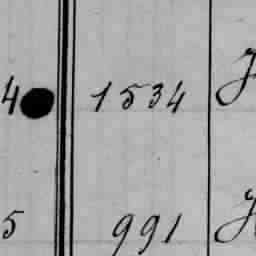 4 1534
5 991